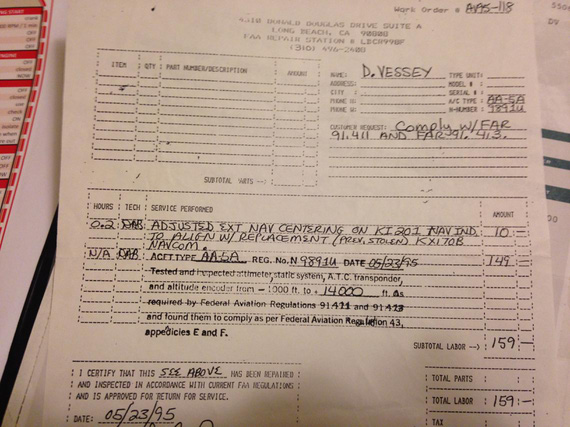 Work Order # APS-118
4310 DONALD DOUGLAS DRIVE SUITE A
LONG BEACH, CA 90808
FAA REPAIR STATION # LDCR998F
(310) 496-2600
ITEM QTY PART NUMBER/DESCRIPTION AMOUNT
NAME: D. VESSEY TYPE UNIT:
ADDRESS: MODEL # :
CITY : SERIAL # :
PHONE A/C TYPE : AA-5A
PHONE N-NUMBER : 9891U
CUSTOMER REQUEST: Comply W/ FAR
91.411 AND FAR 91.413.
SUBTOTAL PARTS -->
HOURS TECH SERVICE PERFORMED AMOUNT
0.2 DAB ADJUSTED EXT NAV CENTERING ON KI201 NAV IND. 10 -
TO ALIGN W/ REPLACEMENT (PREV. STOLEN) KX170B
NAVCOM.
N/A DAB ACFT TYPE AA-5A REG. No. N 9891U DATE 05/23/95 149 -
Tested and inspected altimeter, static system, A.T.C. transponder,
and altitude encoder from -1000 ft. to +14000 ft. As
required by Federal Aviation Regulations 91.411 and 91.413
and found them to comply as per Federal Aviation Regulation 43,
appedicies E and F.
SUBTOTAL LABOR --> 159 -
I CERTIFY THAT THIS SEE ABOVE HAS BEEN REPAIRED
AND INSPECTED IN ACCORDANCE WITH CURRENT FAA REGULATIONS
AND IS APPROVED FOR RETURN FOR SERVICE.
DATE: 05/23/95
TOTAL PARTS
TOTAL LABOR 159 -
TAX